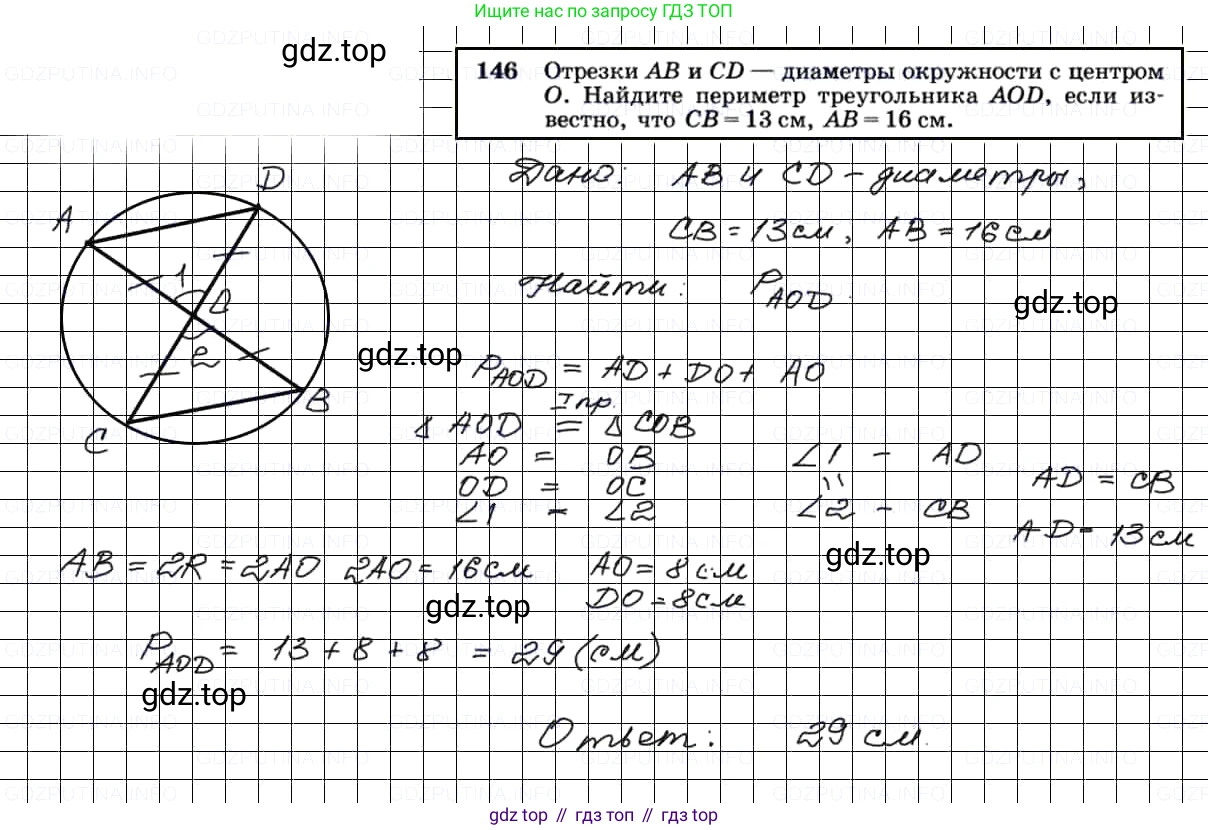 Ищите нас по запросу ГДЗ ТОП
gdz.top
146 Отрезки AB и CD — диаметры окружности с центром
O. Найдите периметр треугольника AOD, если из-
вестно, что CB = 13 см, AB = 16 см.
Дано: AB и CD - диаметры,
CB = 13 см, AB = 16 см
Найти: P_AOD
gdz.top
A
D
1
O
2
B
C
gdz.top
P_AOD = AD + DO + AO
I пр.
Δ AOD = Δ COB
AO = OB
OD = OC
∠1 = ∠2
∠1 - AD
∠2 - CB
AD = CB
AD = 13 см
gdz.top
AB = 2R = 2AO 2AO = 16 см AO = 8 см
DO = 8 см
gdz.top
P_AOD = 13 + 8 + 8 = 29 (см)
gdz.top
Ответ: 29 см.
GDZPUTINA.INFO
gdz top // гдз топ // gdz top